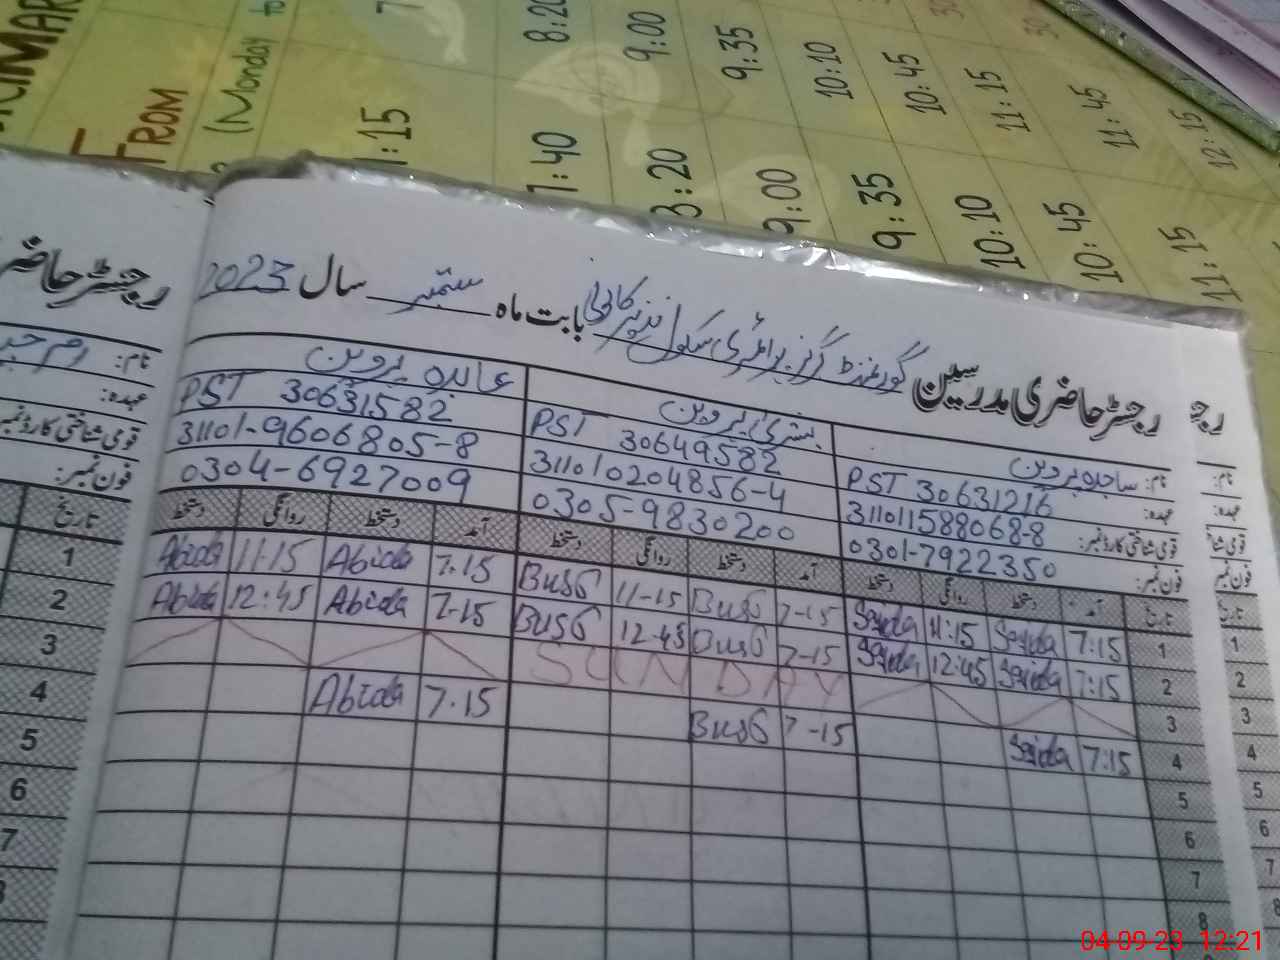 FROM
(Monday to
7 8:20 9:00 9:35 10:10 10:45 11:15 11:45 12:15
7:40 8:20 9:00 9:35 10:10 10:45 11:15
رجسٹر حاضری مدرسین گورنمنٹ گرلز پرائمری سکول نذیر کالونی بابت ماہ ستمبر سال 2023
نام: ساجدہ پروین بشریٰ پروین عابدہ پروین
عہدہ: PST 30631216 PST 30649582 PST 30631582
قومی شناختی کارڈ نمبر: 311011588068-8 311010204856-4 31101-9606805-8
فون نمبر: 0301-7922350 0305-9830200 0304-6927009
تاریخ آمد دستخط روانگی دستخط آمد دستخط روانگی دستخط آمد دستخط روانگی دستخط
1 7:15 Sajida 11:15 Sajida 7-15 Bus6 11-15 Bus6 7.15 Abida 11-15 Abida
2 7:15 Sajida 12:45 Sajida 7-15 Bus6 12-45 Bus6 7-15 Abida 12:45 Abida
3 SUNDAY
4 7:15 Sajida 7-15 Bus6 7.15 Abida
5
6
7
8
رجسٹر حاضر
نام:
عہدہ:
قومی شناختی کارڈ نمبر
فون نمبر:
تاریخ
1
2
3
4
5
6
7
رج
نام:
عہدہ:
فون نمبر
1
2
3
4
5
6
7
8
04-09-23 12:21